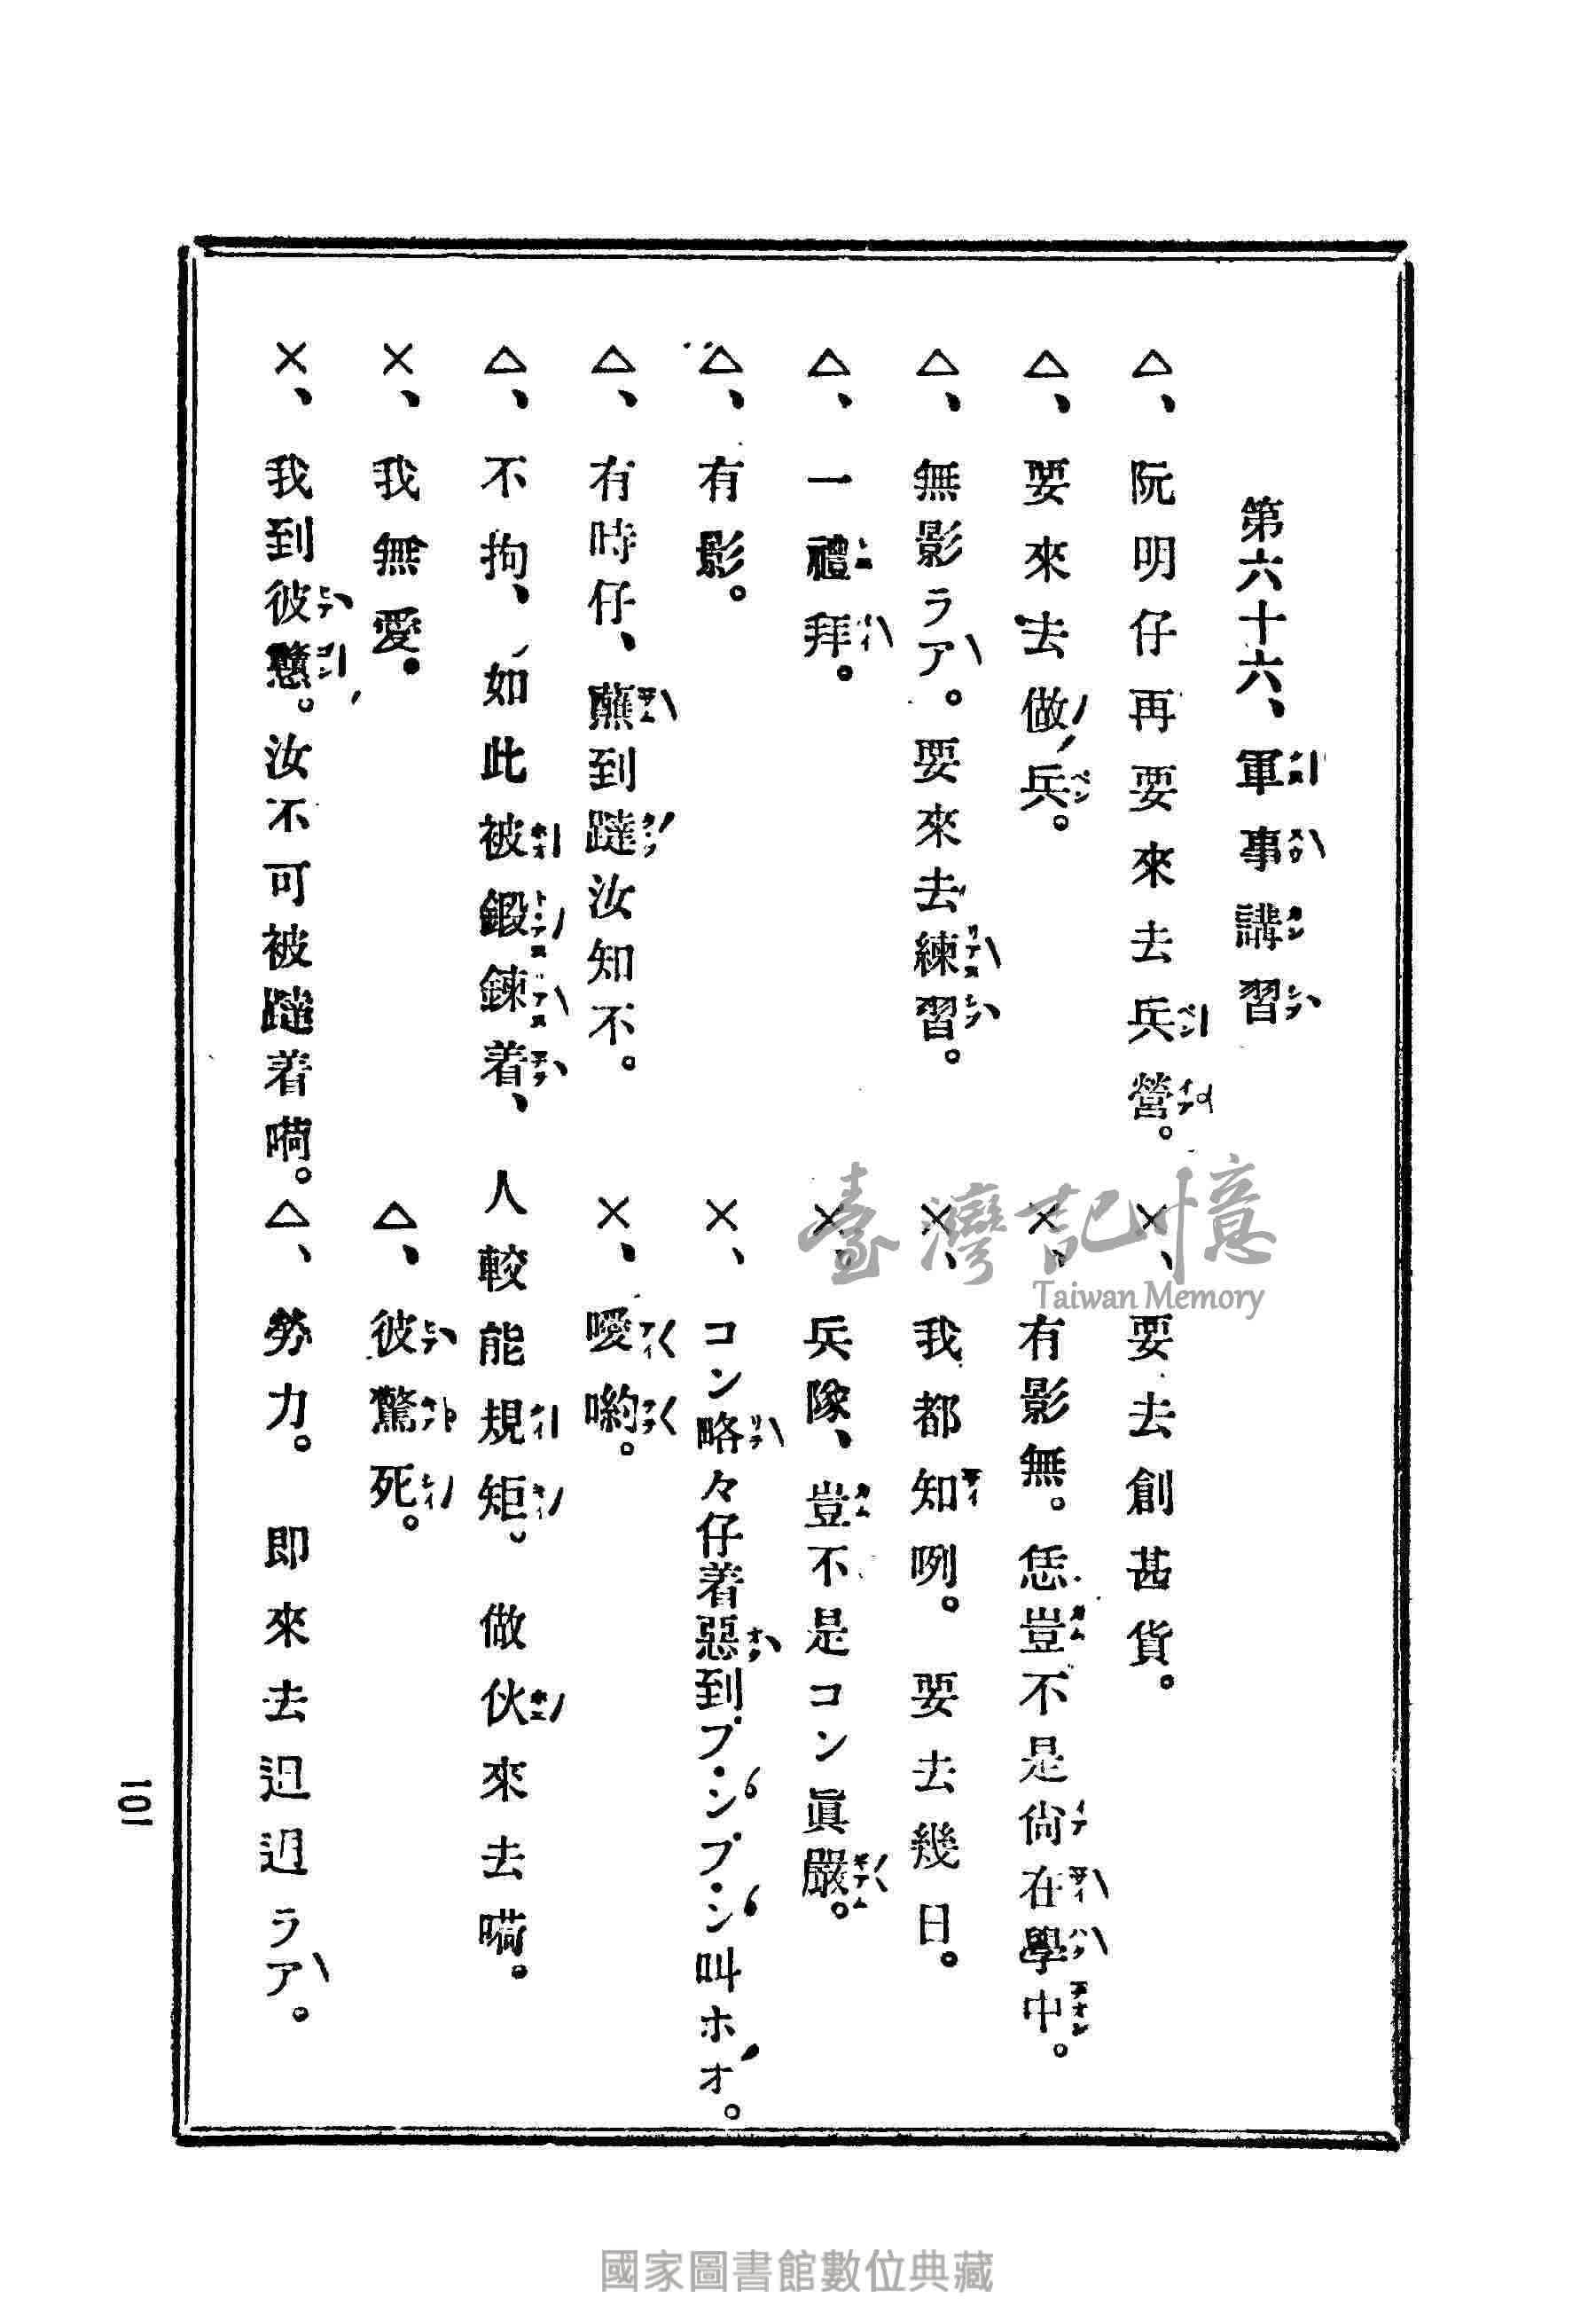 第六十六、軍事講習
△、阮明仔再要來去兵營。 ×、要去創甚貨。
△、要來去做兵。 ×、有影無。恁豈不是尙在學中。
△、無影ラア。要來去練習。 ×、我都知咧。 要去幾日。
△、一禮拜。 ×、兵隊、豈不是コン眞嚴。
△、有影。 ×、コン略々仔着惡到プンプン叫ホオ。
△、有時仔、蘸到躂汝知不。 ×、噯喲。
△、不拘、如此被鍛鍊着、人較能規矩。 做伙來去嗬。
×、我無愛。 △、彼驚死。
×、我到彼戇。汝不可被躂着嗬。 △、勞力。 即來去𨑨迌ラア。
101
臺灣記憶
Taiwan Memory
國家圖書館數位典藏